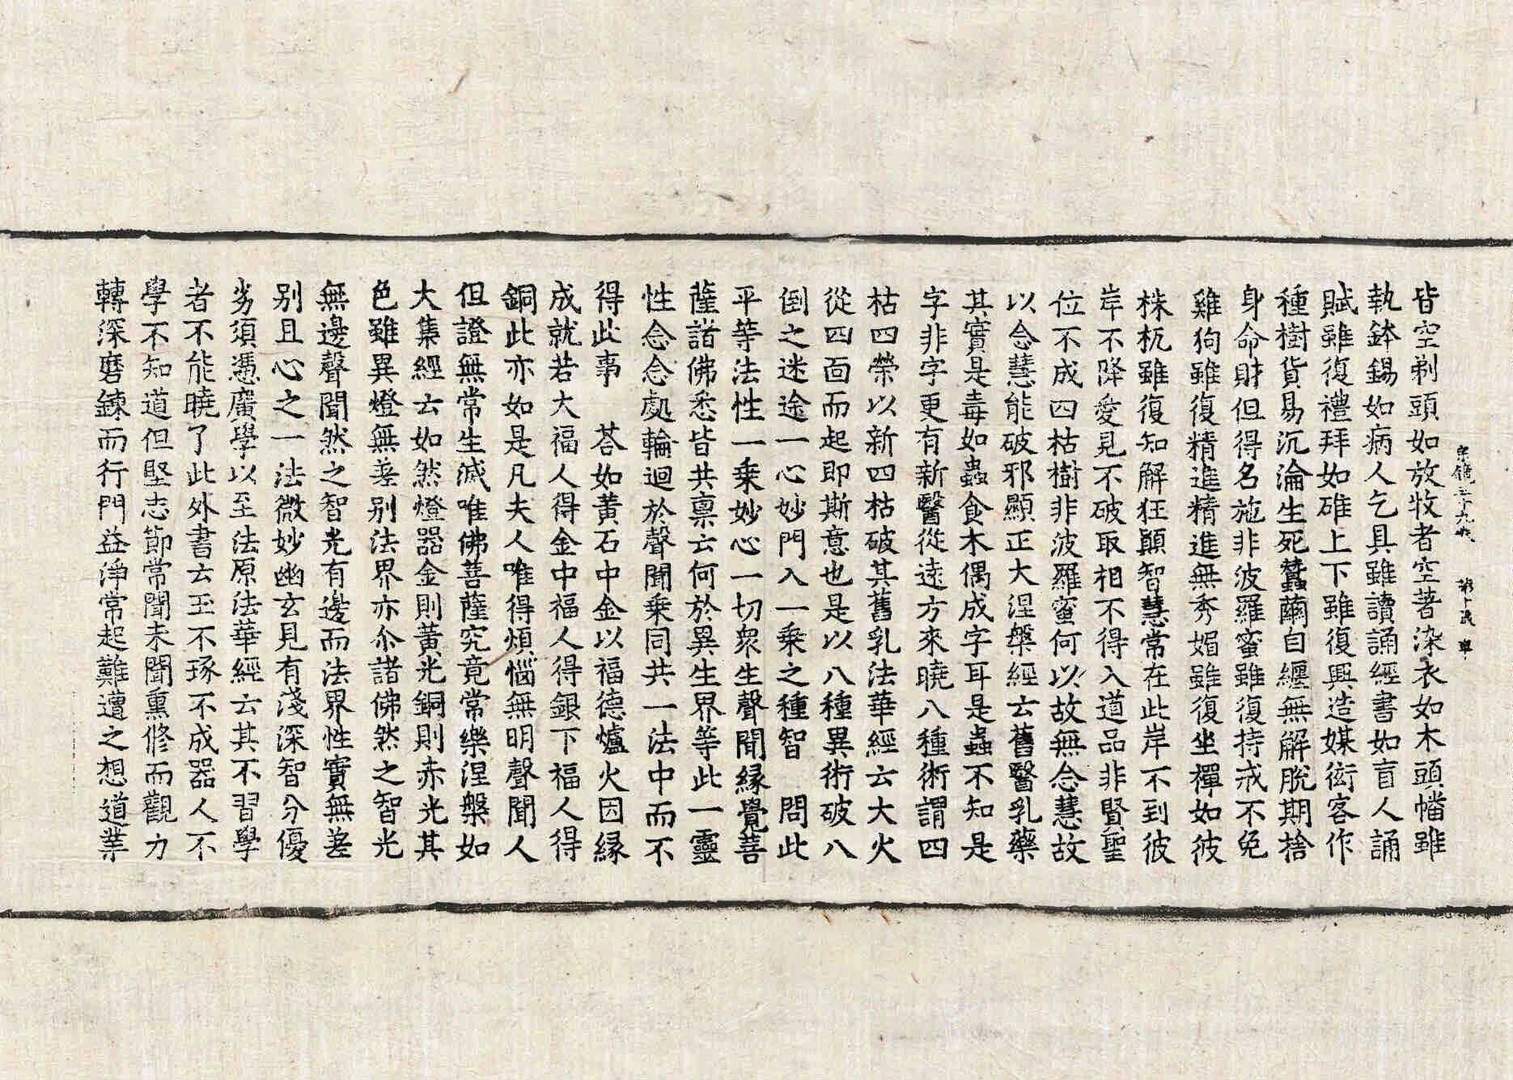 皆空剃頭如放牧者空著染衣如木頭幡雖
執鉢錫如病人乞具雖讀誦經書如盲人誦
賦雖復禮拜如碓上下雖復興造媒衒客作
種樹貨易沉淪生死蠶繭自纏無解脫期捨
身命財但得名施非波羅蜜雖復持戒不免
雞狗雖復精進精進無秀媚雖復坐禪如彼
株杌雖復知解狂顛智慧常在此岸不到彼
岸不降愛見不破取相不得入道品非賢聖
位不成四枯樹非波羅蜜何以故無念慧故
以念慧能破邪顯正大涅槃經云舊醫乳藥
其實是毒如蟲食木偶成字耳是蟲不知是
字非字更有新醫從遠方來曉八種術謂四
枯四榮以新四枯破其舊乳法華經云大火
從四面而起即斯意也是以八種異術破八
倒之迷途一心妙門入一乘之種智　問此
平等法性一乘妙心一切衆生聲聞緣覺菩
薩諸佛悉皆共禀云何於異生界等此一靈
性念念處輪迴於聲聞乘同共一法中而不
得此事　荅如黃石中金以福德爐火因緣
成就若大福人得金中福人得銀下福人得
銅此亦如是凡夫人唯得煩惱無明聲聞人
但證無常生滅唯佛菩薩究竟常樂涅槃如
大集經云如然燈器金則黃光銅則赤光其
色雖異燈無差別法界亦尒諸佛然之智光
無邊聲聞然之智光有邊而法界性實無差
別且心之一法微妙幽玄見有淺深智分優
劣須憑廣學以至法原法華經云其不習學
者不能曉了此外書云玉不琢不成器人不
學不知道但堅志節常聞未聞熏修而觀力
轉深磨鍊而行門益淨常起難遭之想道業